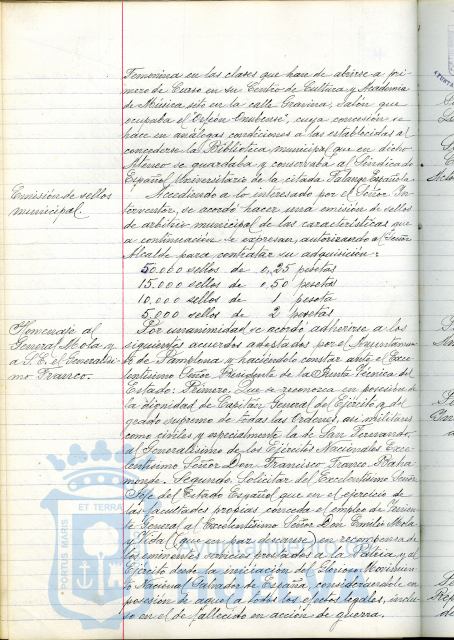 Femenina en las clases que han de abrirse a pri-
mero de Curso en su Centro de Cultura y Academia
de Música sito en la calle Gravina, Salón que
ocupaba el "Orfeón Onubense", cuya concesión se
hace en análogas condiciones a las establecidas al
concederle la Biblioteca municipal que en dicho
Ateneo se guardaba y conservaba al Sindicado
Español Universitario de la citada Falange Española.
Emisión de sellos
municipal.
Accediendo a lo interesado por el Señor In-
terventor, se acordó hacer una emisión de sellos
de arbitrio municipal de las características que
a continuación se expresan, autorizando al Señor
Alcalde para contratar su adquisición:
50.000 sellos de 0,25 pesetas
15.000 sellos de 0,50 pesetas
10.000 sellos de 1 peseta
5.000 sellos de 2 pesetas
Homenaje al
General Mola y
a S.E. el Generalísi-
mo Franco.
Por unanimidad se acordó adherirse a los
siguientes acuerdos adoptados por el Ayuntamien-
to de Pamplona y haciéndolo constar ante el Exce-
lentísimo Señor Presidente de la Junta Técnica del
Estado: Primero. Que se reconozca en posesión de
la dignidad de Capitán General del Ejército y del
grado supremo de todas las Ordenes, así militares
como civiles y especialmente la de San Fernando,
al Generalísimo de los Ejércitos Nacionales Exce-
lentísimo Señor Don Francisco Franco Baha-
monde. Segundo. Solicitar del Excelentísimo Señor
Jefe del Estado Español que en el ejercicio de
las facultades propias conceda el empleo de Tenien-
te General al Excelentísimo Señor Don Emilio Mola
y Vidal (que en paz descanse) en recompensa de
los eminentes servicios prestados a la Patria y al
Ejército desde la iniciación del Glorioso Movimien-
to Nacional Salvador de España, considerándole en
posesión de aquel a todos los efectos legales, inclu-
so en el de fallecido en acción de guerra.
PORTUS MARIS
ET TERRA